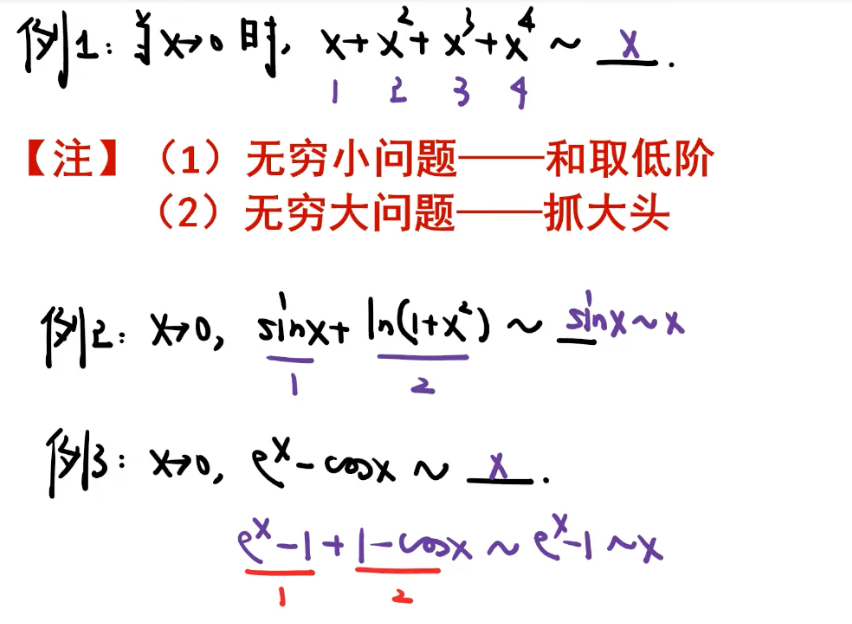 例1: 当x→0时, x+x²+x³+x⁴ ~ x .
1 2 3 4
【注】（1）无穷小问题——和取低阶
（2）无穷大问题——抓大头
例2: x→0, sinx+ ln(1+x²) ~ sinx~x
1 2
例3: x→0, eˣ-cosx ~ x .
eˣ-1+1-cosx ~ eˣ-1 ~x
1 2